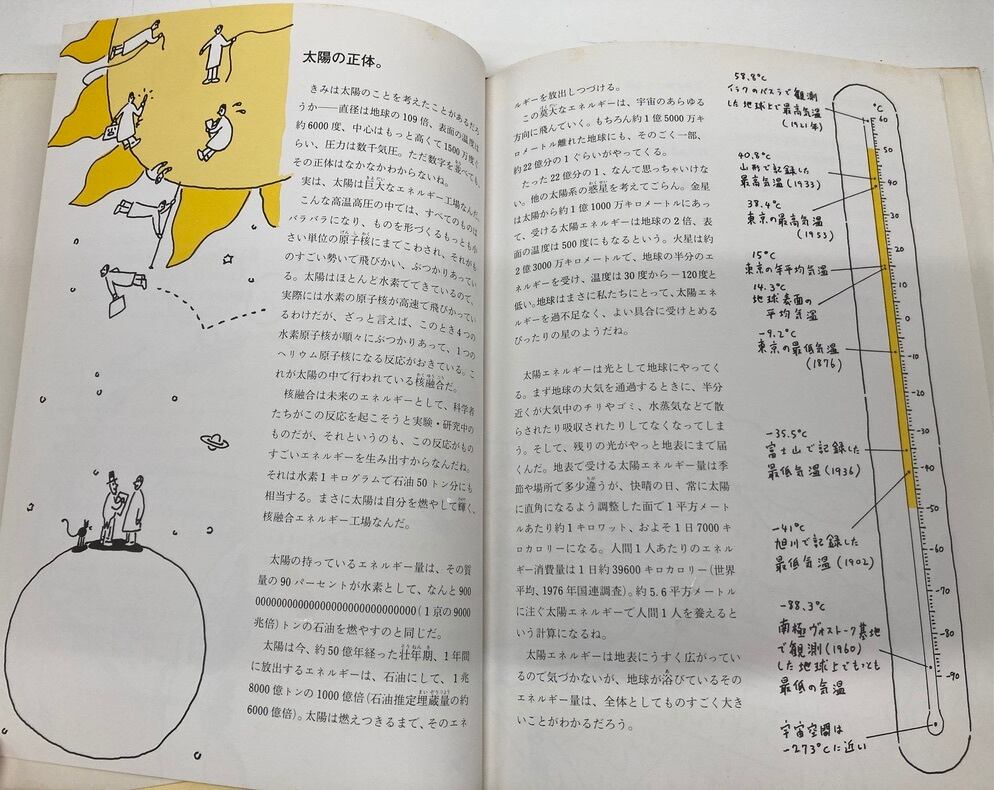 太陽の正体。
きみは太陽のことを考えたことがあるだろ
うか——直径は地球の109倍、表面の温度は
約6000度、中心はもっと高くて1500万度ぐ
らい、圧力は数千気圧。ただ数字を並べても、
その正体はなかなかわからないね。
実は、太陽は巨大なエネルギー工場なんだ。
こんな高温高圧の中では、すべてのものは
バラバラになり、ものを形づくるもっとも小
さい単位の原子核にまでこわされ、それがも
のすごい勢いで飛びかい、ぶつかりあってい
る。太陽はほとんど水素でできているので、
実際には水素の原子核が高速で飛びかってい
るわけだが、ざっと言えば、このとき4つの
水素原子核が順々にぶつかりあって、1つの
ヘリウム原子核になる反応がおきている。こ
れが太陽の中で行われている核融合だ。
核融合は未来のエネルギーとして、科学者
たちがこの反応を起こそうと実験・研究中の
ものだが、それというのも、この反応がもの
すごいエネルギーを生み出すからなんだね。
それは水素1キログラムで石油50トン分にも
相当する。まさに太陽は自分を燃やして輝く、
核融合エネルギー工場なんだ。
太陽の持っているエネルギー量は、その質
量の90パーセントが水素として、なんと900
00000000000000000000000000(1京の9000
兆倍)トンの石油を燃やすのと同じだ。
太陽は今、約50億年経った壮年期、1年間
に放出するエネルギーは、石油にして、1兆
8000億トンの1000億倍(石油推定埋蔵量の約
6000億倍)。太陽は燃えつきるまで、そのエネ
ルギーを放出しつづける。
この莫大なエネルギーは、宇宙のあらゆる
方向に飛んでいく。もちろん約1億5000万キ
ロメートル離れた地球にも、そのごく一部、
約22億分の1ぐらいがやってくる。
たった22億分の1、なんて思っちゃいけな
い。他の太陽系の惑星を考えてごらん。金星
は太陽から約1億1000万キロメートルにあっ
て、受ける太陽エネルギーは地球の2倍、表
面の温度は500度にもなるという。火星は約
2億3000万キロメートルで、地球の半分のエ
ネルギーを受け、温度は30度から−120度と
低い。地球はまさに私たちにとって、太陽エネ
ルギーを過不足なく、よい具合に受けとめる
ぴったりの星のようだね。
太陽エネルギーは光として地球にやってく
る。まず地球の大気を通過するときに、半分
近くが大気中のチリやゴミ、水蒸気などで散
らされたり吸収されたりしてなくなってしま
う。そして、残りの光がやっと地表にまで届
くんだ。地表で受ける太陽エネルギー量は季
節や場所で多少違うが、快晴の日、常に太陽
に直角になるよう調整した面で1平方メート
ルあたり約1キロワット、およそ1日7000キ
ロカロリーになる。人間1人あたりのエネル
ギー消費量は1日約39600キロカロリー(世界
平均、1976年国連調査)。約5.6平方メートル
に注ぐ太陽エネルギーで人間1人を養えると
いう計算になるね。
太陽エネルギーは地表にうすく広がってい
るので気づかないが、地球が浴びているその
エネルギー量は、全体としてものすごく大き
いことがわかるだろう。
58.8℃
イラクのバスラで観測
した地球上で最高気温
(1921年)
40.8℃
山形で記録した
最高気温(1933)
38.4℃
東京の最高気温
(1953)
15℃
東京の年平均気温
14.3℃
地球表面の
平均気温
-9.2℃
東京の最低気温
(1876)
-35.5℃
富士山で記録した
最低気温(1936)
-41℃
旭川で記録した
最低気温(1902)
-88.3℃
南極ヴォストーク基地
で観測(1960)
した地球上でもっとも
最低の気温
宇宙空間は
-273℃に近い
℃
60
50
40
30
20
10
0
-10
-20
-30
-40
-50
-60
-70
-80
-90